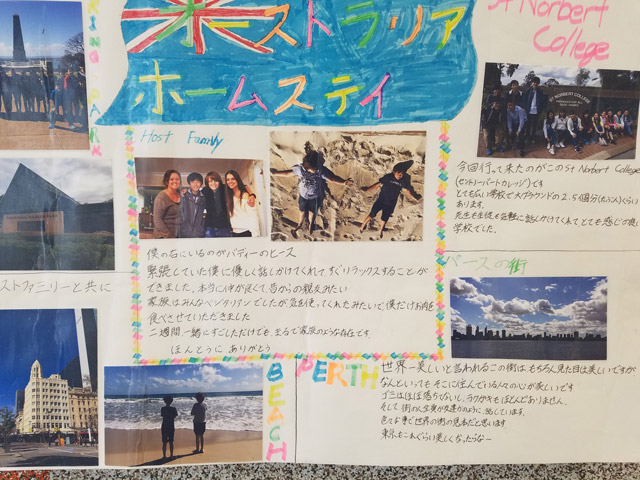 オーストラリア
ホームステイ
St Norbert
College
KING PARK
Host Family
僕の右にいるのがバディーのヒース
緊張していた僕に優しく話しかけてくれてすぐリラックスすることが
できました。本当に仲が良くて昔からの親友みたい
家族はみんなベジタリアンでしたが気を使ってくれたみたいで僕だけお肉を
食べさせていただきました
二週間一緒にすごしただけでも まるで家族のような存在です。
ほんとうに ありがとう
今回行って来たのがこのSt Norbert College
(セントノーバートカレッジ)です
とても広い学校で大グラウンドの2.5個分くらい
あります。
先生も生徒も気軽に話しかけてくれてとても感じの良い
学校でした。
パースの街
ストファミリーと共に
BEACH
PERTH
世界一美しいと言われるこの街は、もちろん見た目は美しいですが
なんといってもそこに住んでいる人々の心が美しいです
ゴミはほぼ落ちてないし、ラクガキもほとんどありません。
そして街の人全員が友達かのように、話しています。
色々な事で世界の街の見本だと思います
東京もこれぐらい美しくなったらなー